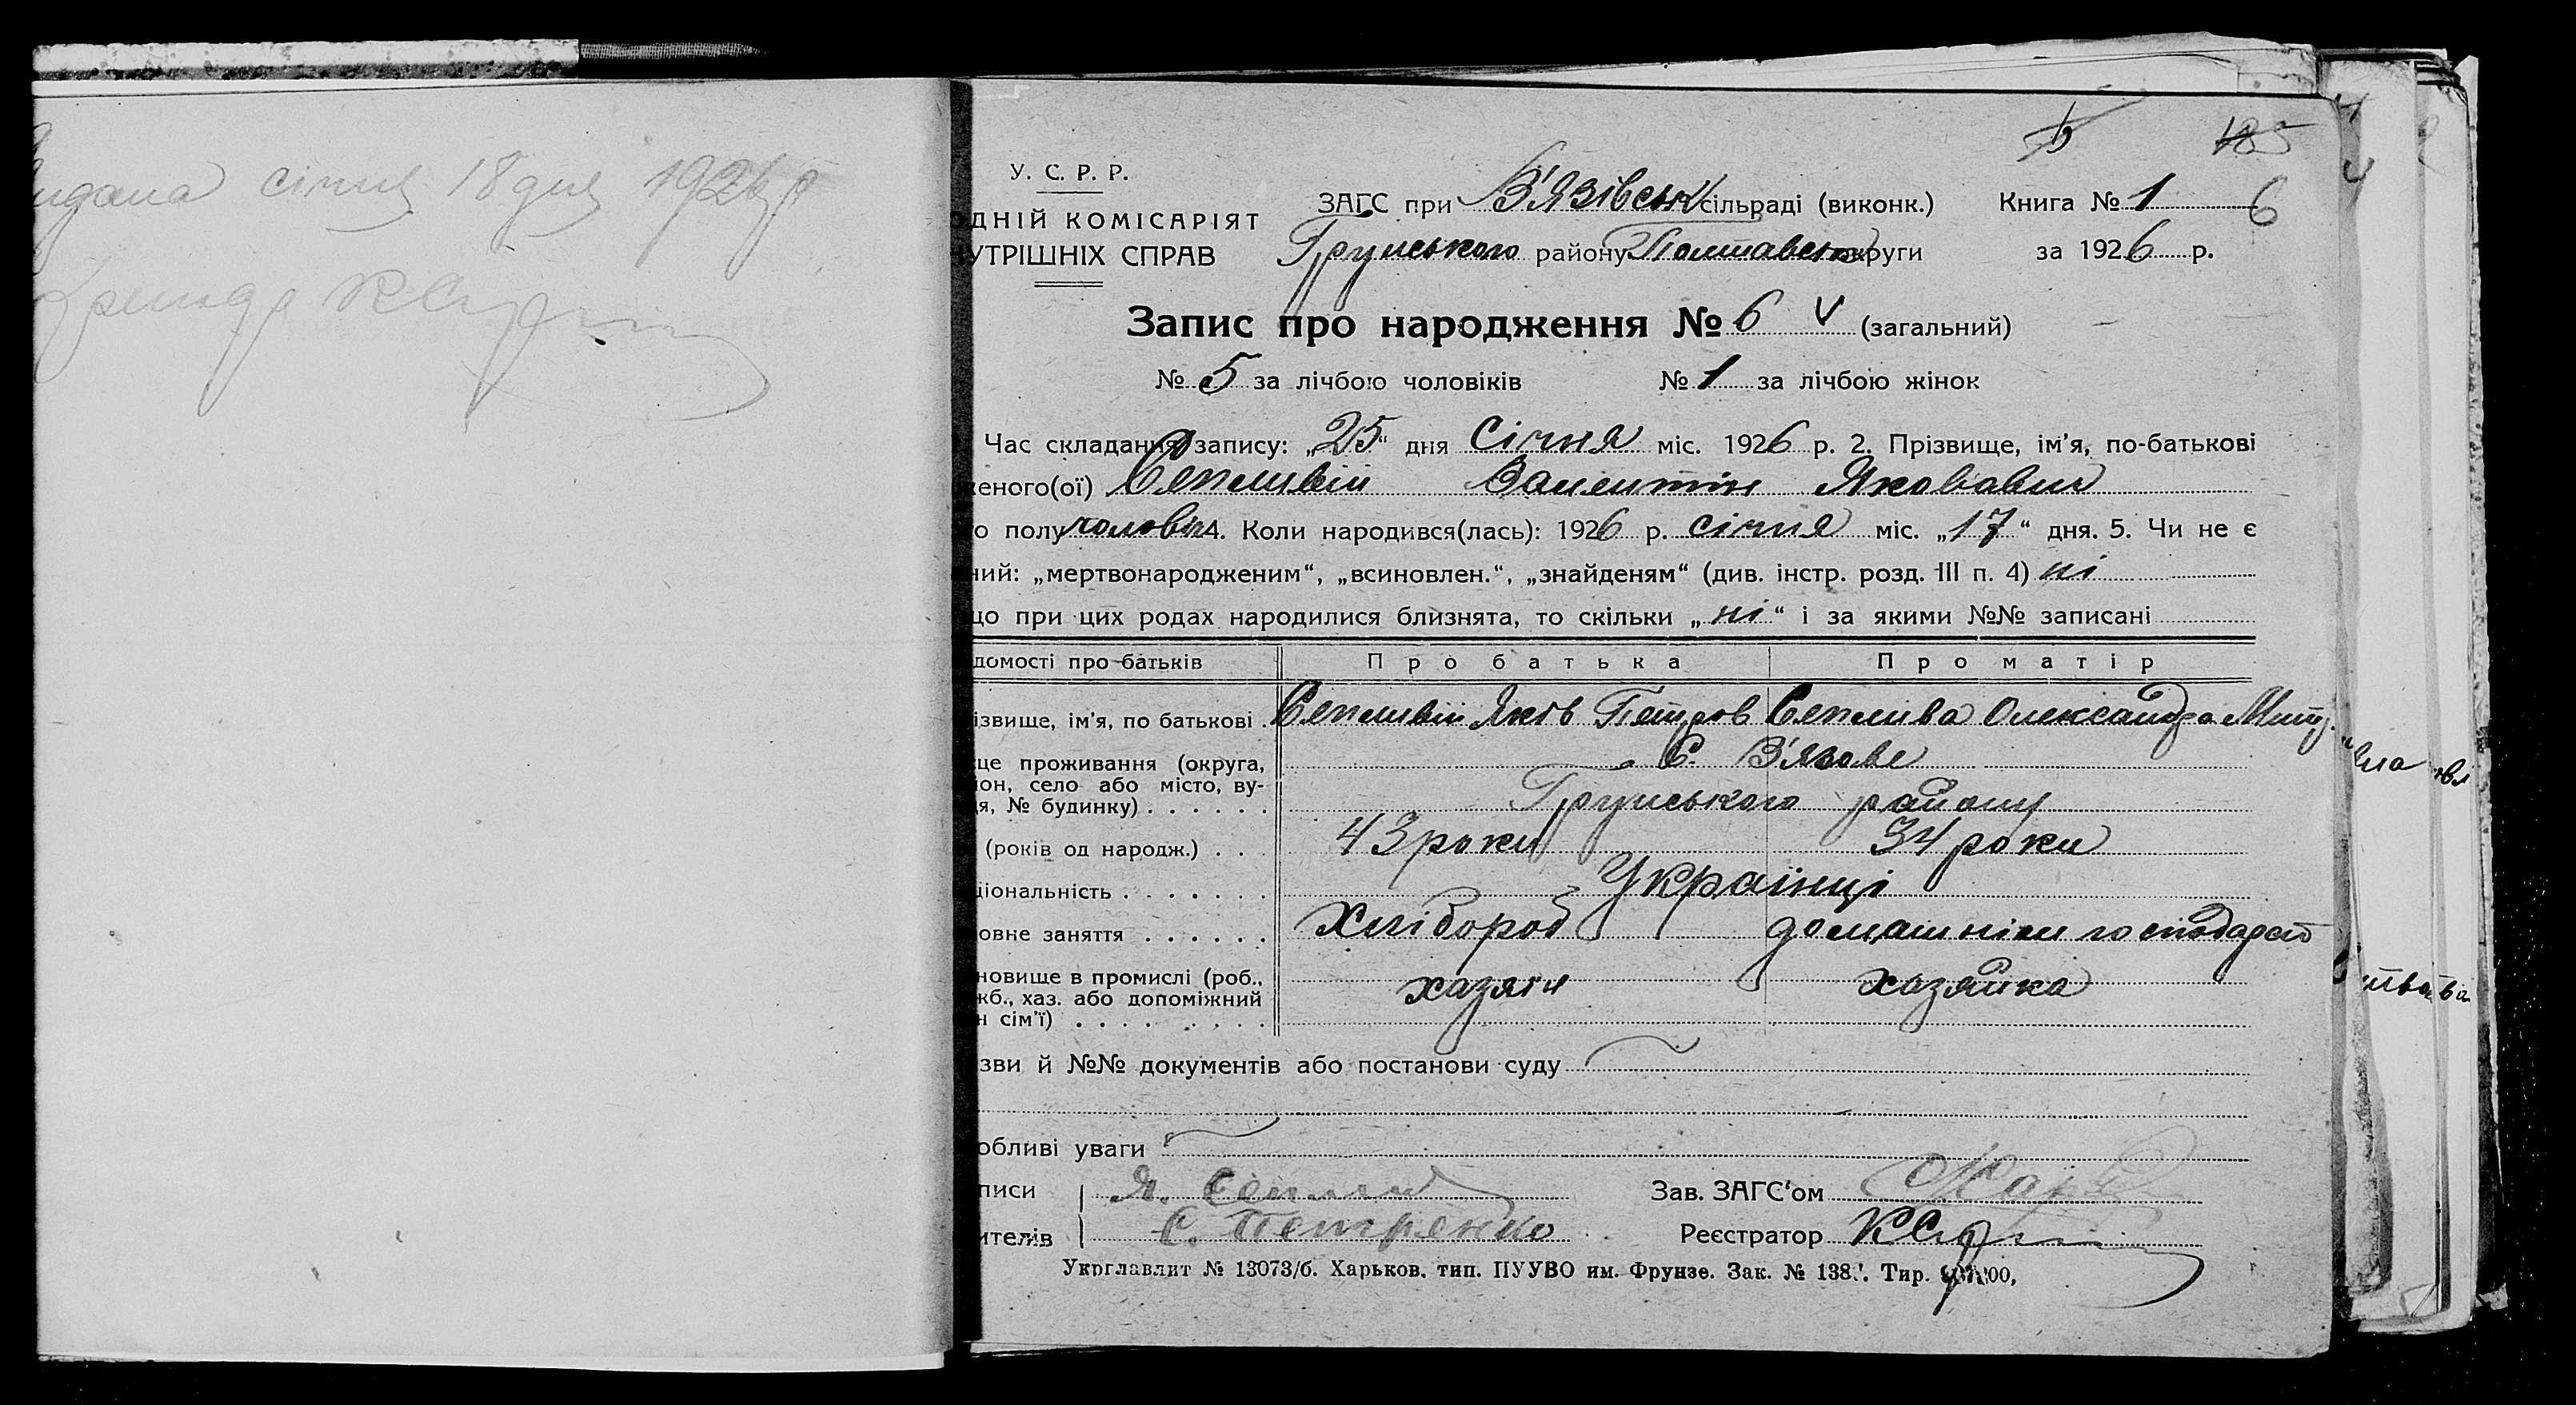 січня 18 дня 1926 р
185
6
У. С. Р. Р.
ДНІЙ КОМІСАРІЯТ
УТРІШНІХ СПРАВ
ЗАГС при В'язівськ сільраді (виконк.) Книга № 1
Грунського району Полтавськ округи за 1926 р.
Запис про народження № 6 V (загальний)
№ 5 за лічбою чоловіків № 1 за лічбою жінок
Час складання запису: „25“ дня Січня міс. 1926 р. 2. Прізвище, ім'я, по-батькові
еного(ої) Сепливій Валентін Яковавич
о полу чоловіч 4. Коли народився(лась): 1926 р. січня міс. „17“ дня. 5. Чи не є
ний: „мертвонародженим“, „всиновлен.“, „знайденям“ (див. інстр. розд. III п. 4) ні
що при цих родах народилися близнята, то скільки „ні“ і за якими №№ записані
домості про батьків Про батька Про матір
ізвище, ім'я, по батькові . Сепливій Яків Петров Сеплива Олександра Митр.
це проживання (округа, С. В'язове
он, село або місто, ву-
я, № будинку) . . . . . . Грунського району
(років од народж.) . . . 43 роки 34 роки
ціональність . . . . . . . Українці
овне заняття . . . . . . Хлібороб домашнім господарст
новище в промислі (роб.,
жб., хаз. або допоміжний хазяїн хазяйка
н сім'ї) . . . . . . . . .
зви й №№ документів або постанови суду
обливі уваги
писи Я. Зав. ЗАГС'ом
ителів С. Петренко Реєстратор
Укрглавлит № 13073/б. Харьков. тип. ПУУВО им. Фрунзе. Зак. № 138 Тир.